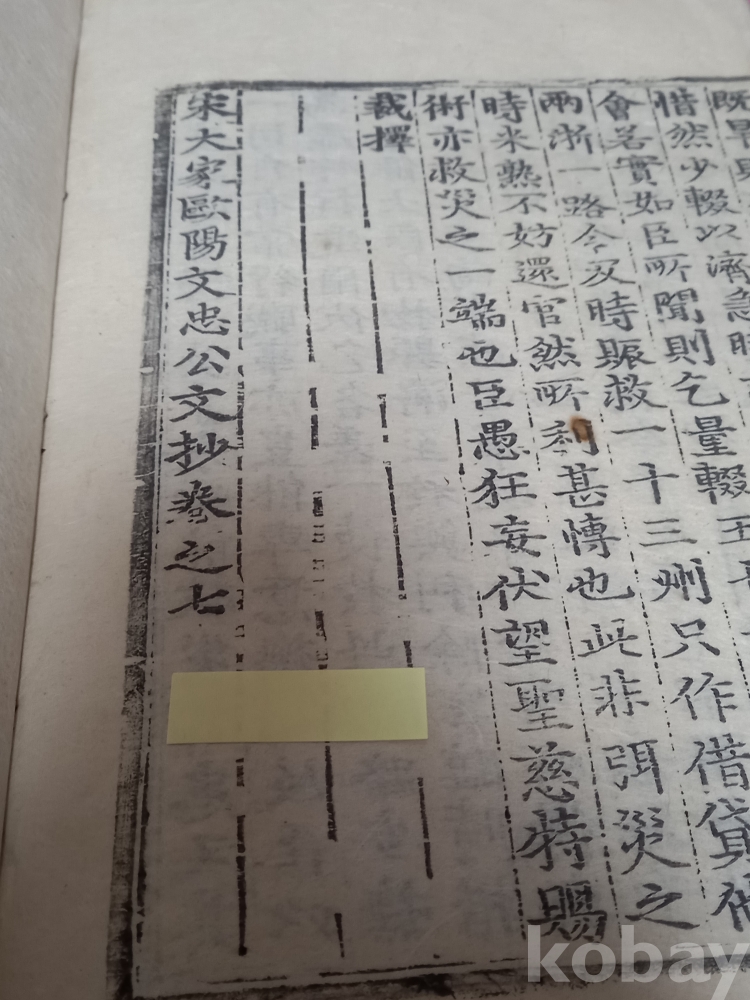 惜然少輟以濟急時
會若實如臣所聞則乞量輟五
兩浙一路令及時賑救一十三州只作借貸
時米熟不妨還官然所利甚博也此非弭災之
術亦救災之一端也臣愚狂妄伏望聖慈特賜
裁擇
宋大家歐陽文忠公文抄卷之七
kobay